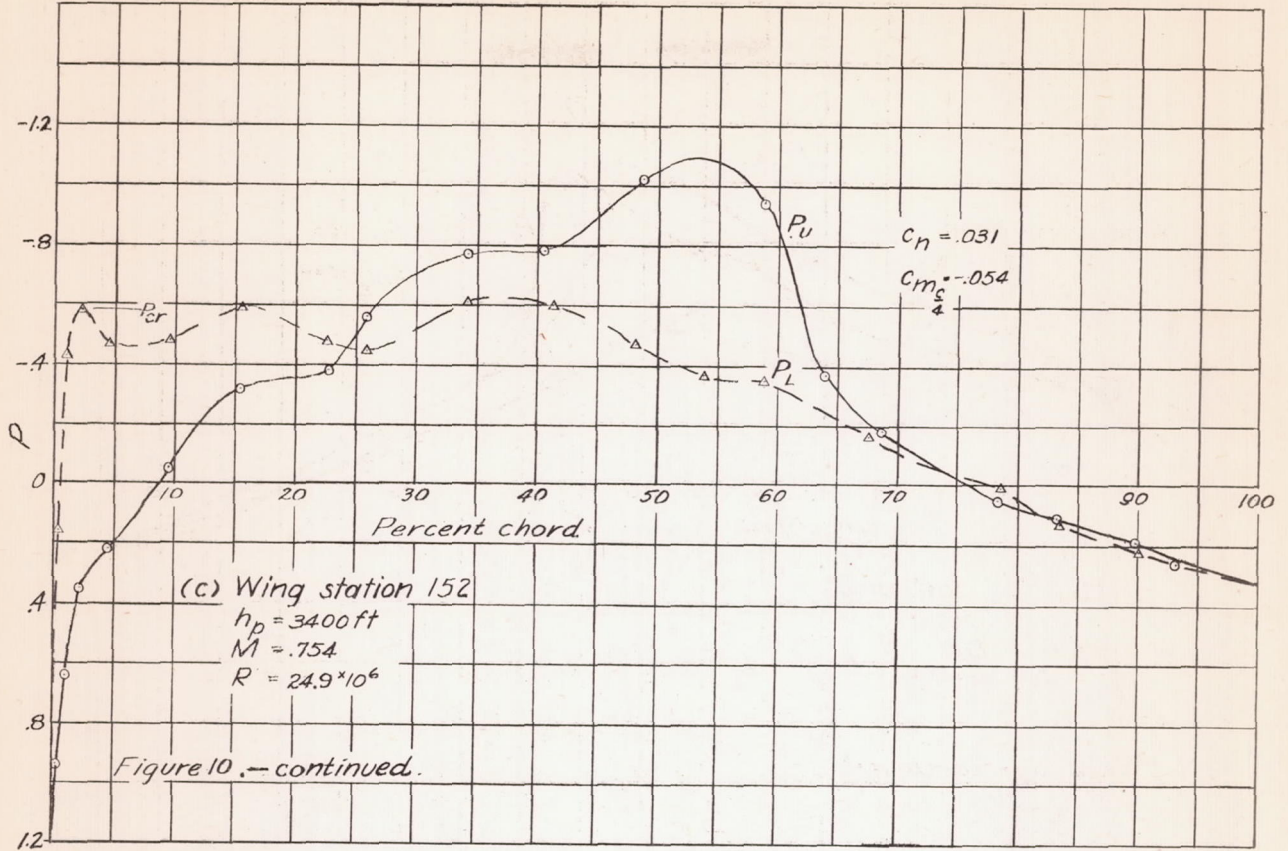 -1.2
-.8
-.4
0
.4
.8
1.2
P
10 20 30 40 50 60 70 90 100
Percent chord
Pcr
PU
PL
cn = .031
cm c/4 = -.054
(c) Wing station 152
hp = 3400 ft
M = .754
R = 24.9 × 10^6
Figure 10.— continued.